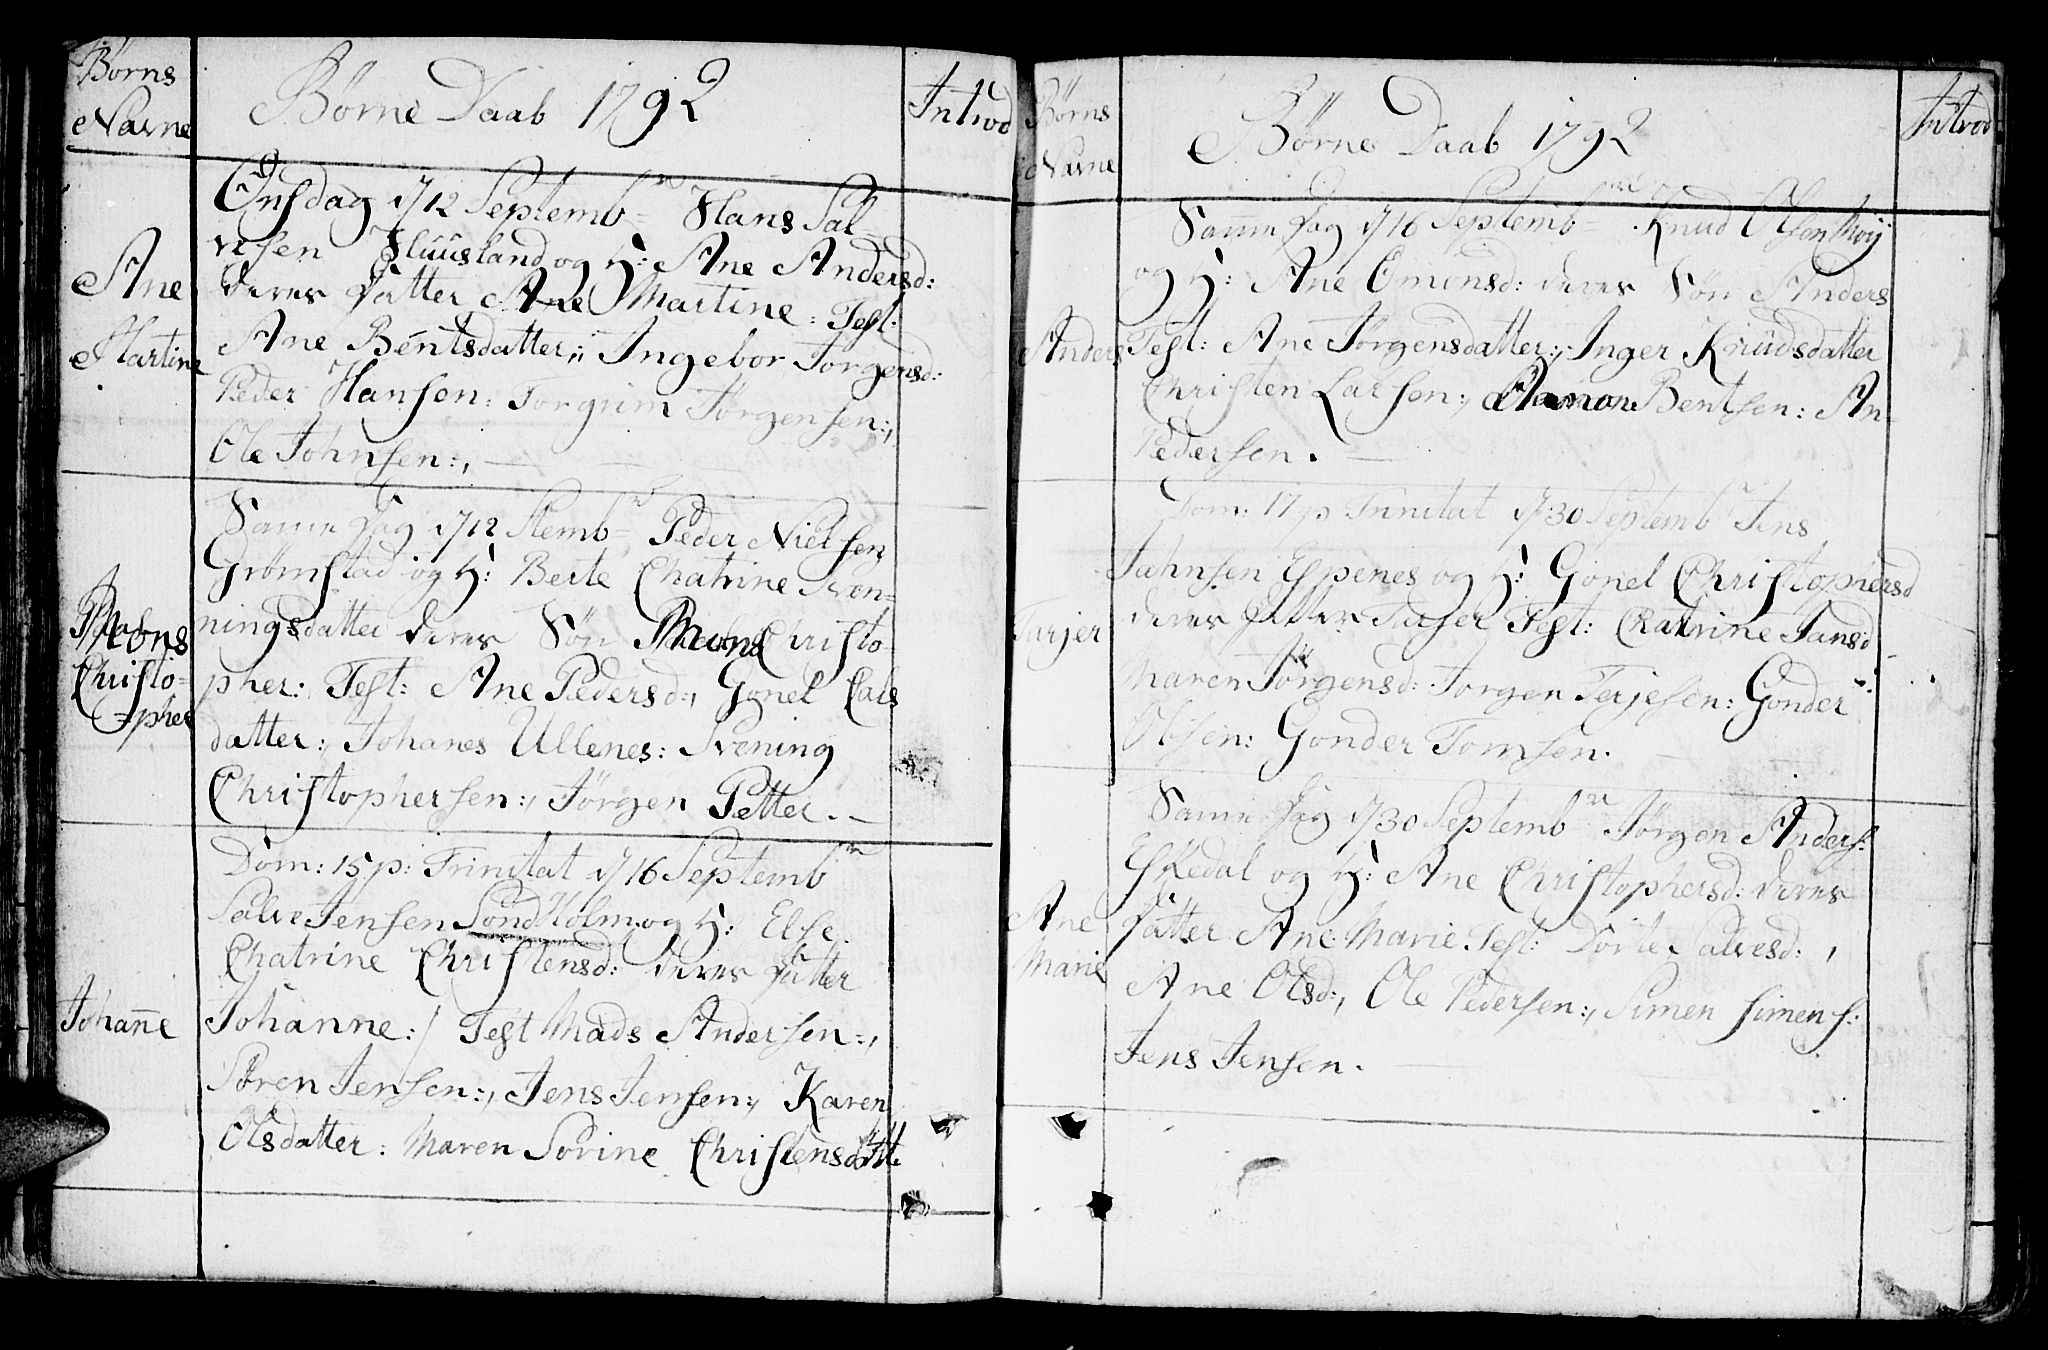 Børns
Navne
Børne Daab 1792
Introd
Onsdag d/12 Septembr Hans Sal-
vesen Fluusland og H: Ane Andersd:
deres Datter Ane Martine: Test:
Ane Bentsdatter:, Ingebor Jørgensd:
Peder Hansen: Torgrim Jørgensen:,
Ole Johnsen:,
Ane
Martine
Samme Dag d/12 Stembr Peder Nielsen
Grømstad og H: Berte Chatrine Sven-
ningsdatter deres Søn Mons Christo-
pher: Test: Ane Pedersd:, Gonel Cals
datter:, Johanes Ullenes: Svening
Christophersen:, Jørgen Petter.
Mons
Christo-
pher
Dom: 15 p: Trinitat d/16 Septembr
Salve Jensen Sondholm og H: Else
Chatrine Christensd: deres Datter
Johanne:/ Test Mads Andersen:,
Søren Jensen:, Jens Jensen:, Karen
Olsdatter: Maren Sorine Christensdatt.
Johanne
Børns
Navne
Børne Daab 1792
Introd
Samme Dag d/16 Septembr Knud Olsen Moy
og H: Ane Omensd: deres Søn Anders
Test: Ane Jørgensdatter:, Inger Knudsdatter
Christen Larsen:, Bentsen: An-
Pedersen.
Anders
Dom: 17 p Trinitat d/30 Septembr Jens
Juhnsen Espenes og H: Gonel Christophersd
deres Datter Tarjer Test: Chatrine Jansd
Maren Jørgensd: Jorgen Terjesen: Gonder
Olsen: Gonder Tomsen.
Tarjer
Samme Dag d/30 Septembr Jørgen Anders:
Eskedal og H: Ane Christophersd: deres
Datter Ane Marie Test: Dorte Salvesd:,
Ane Olsd:, Ole Pedersen:, Simen Simens:
Jens Jensen.
Ane
Marie